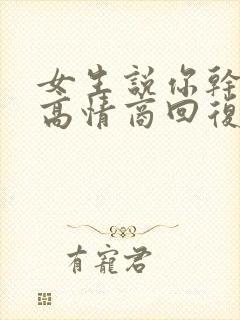 女生說你幹
高情商回復
有寵君